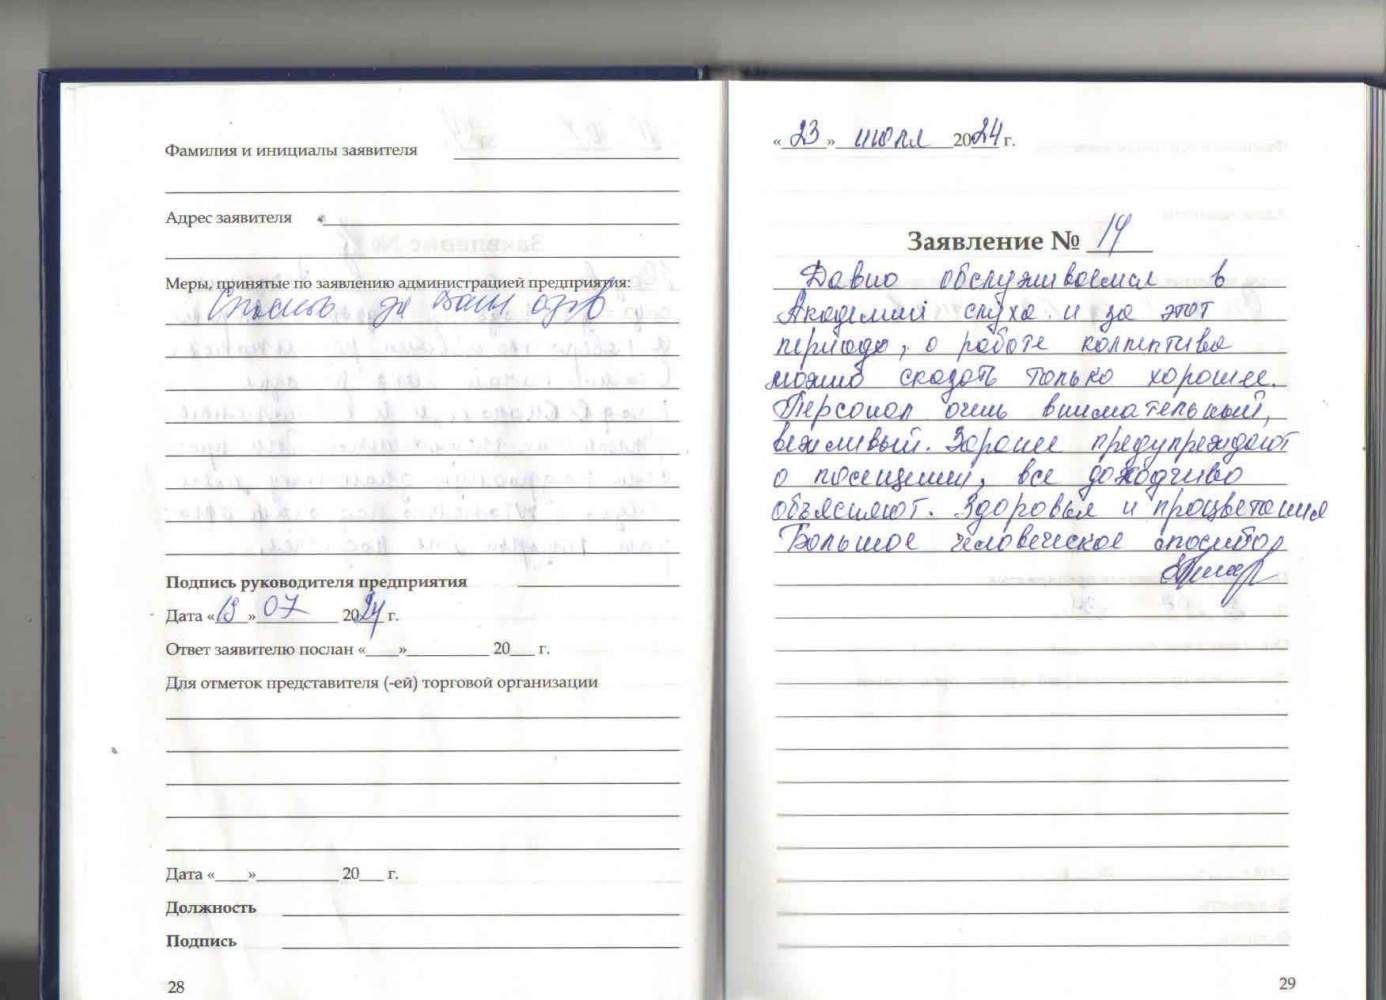 Фамилия и инициалы заявителя
Адрес заявителя
Меры, принятые по заявлению администрацией предприятия:
Спасибо за Ваш отзыв
Подпись руководителя предприятия
Дата «19» 07 2024 г.
Ответ заявителю послан «___»__________ 20___ г.
Для отметок представителя (-ей) торговой организации
Дата «____»__________ 20___ г.
Должность
Подпись
28
«23» июля 2024 г.
Заявление № 14
Давно обслуживаемся в
Академии слуха и за этот
период, о работе коллектива
можно сказать только хорошее.
Персонал очень внимательный,
вежливый. Заранее предупреждают
о посещении, все доходчиво
объясняют. Здоровья и процветания
Большое человеческое спасибо
29